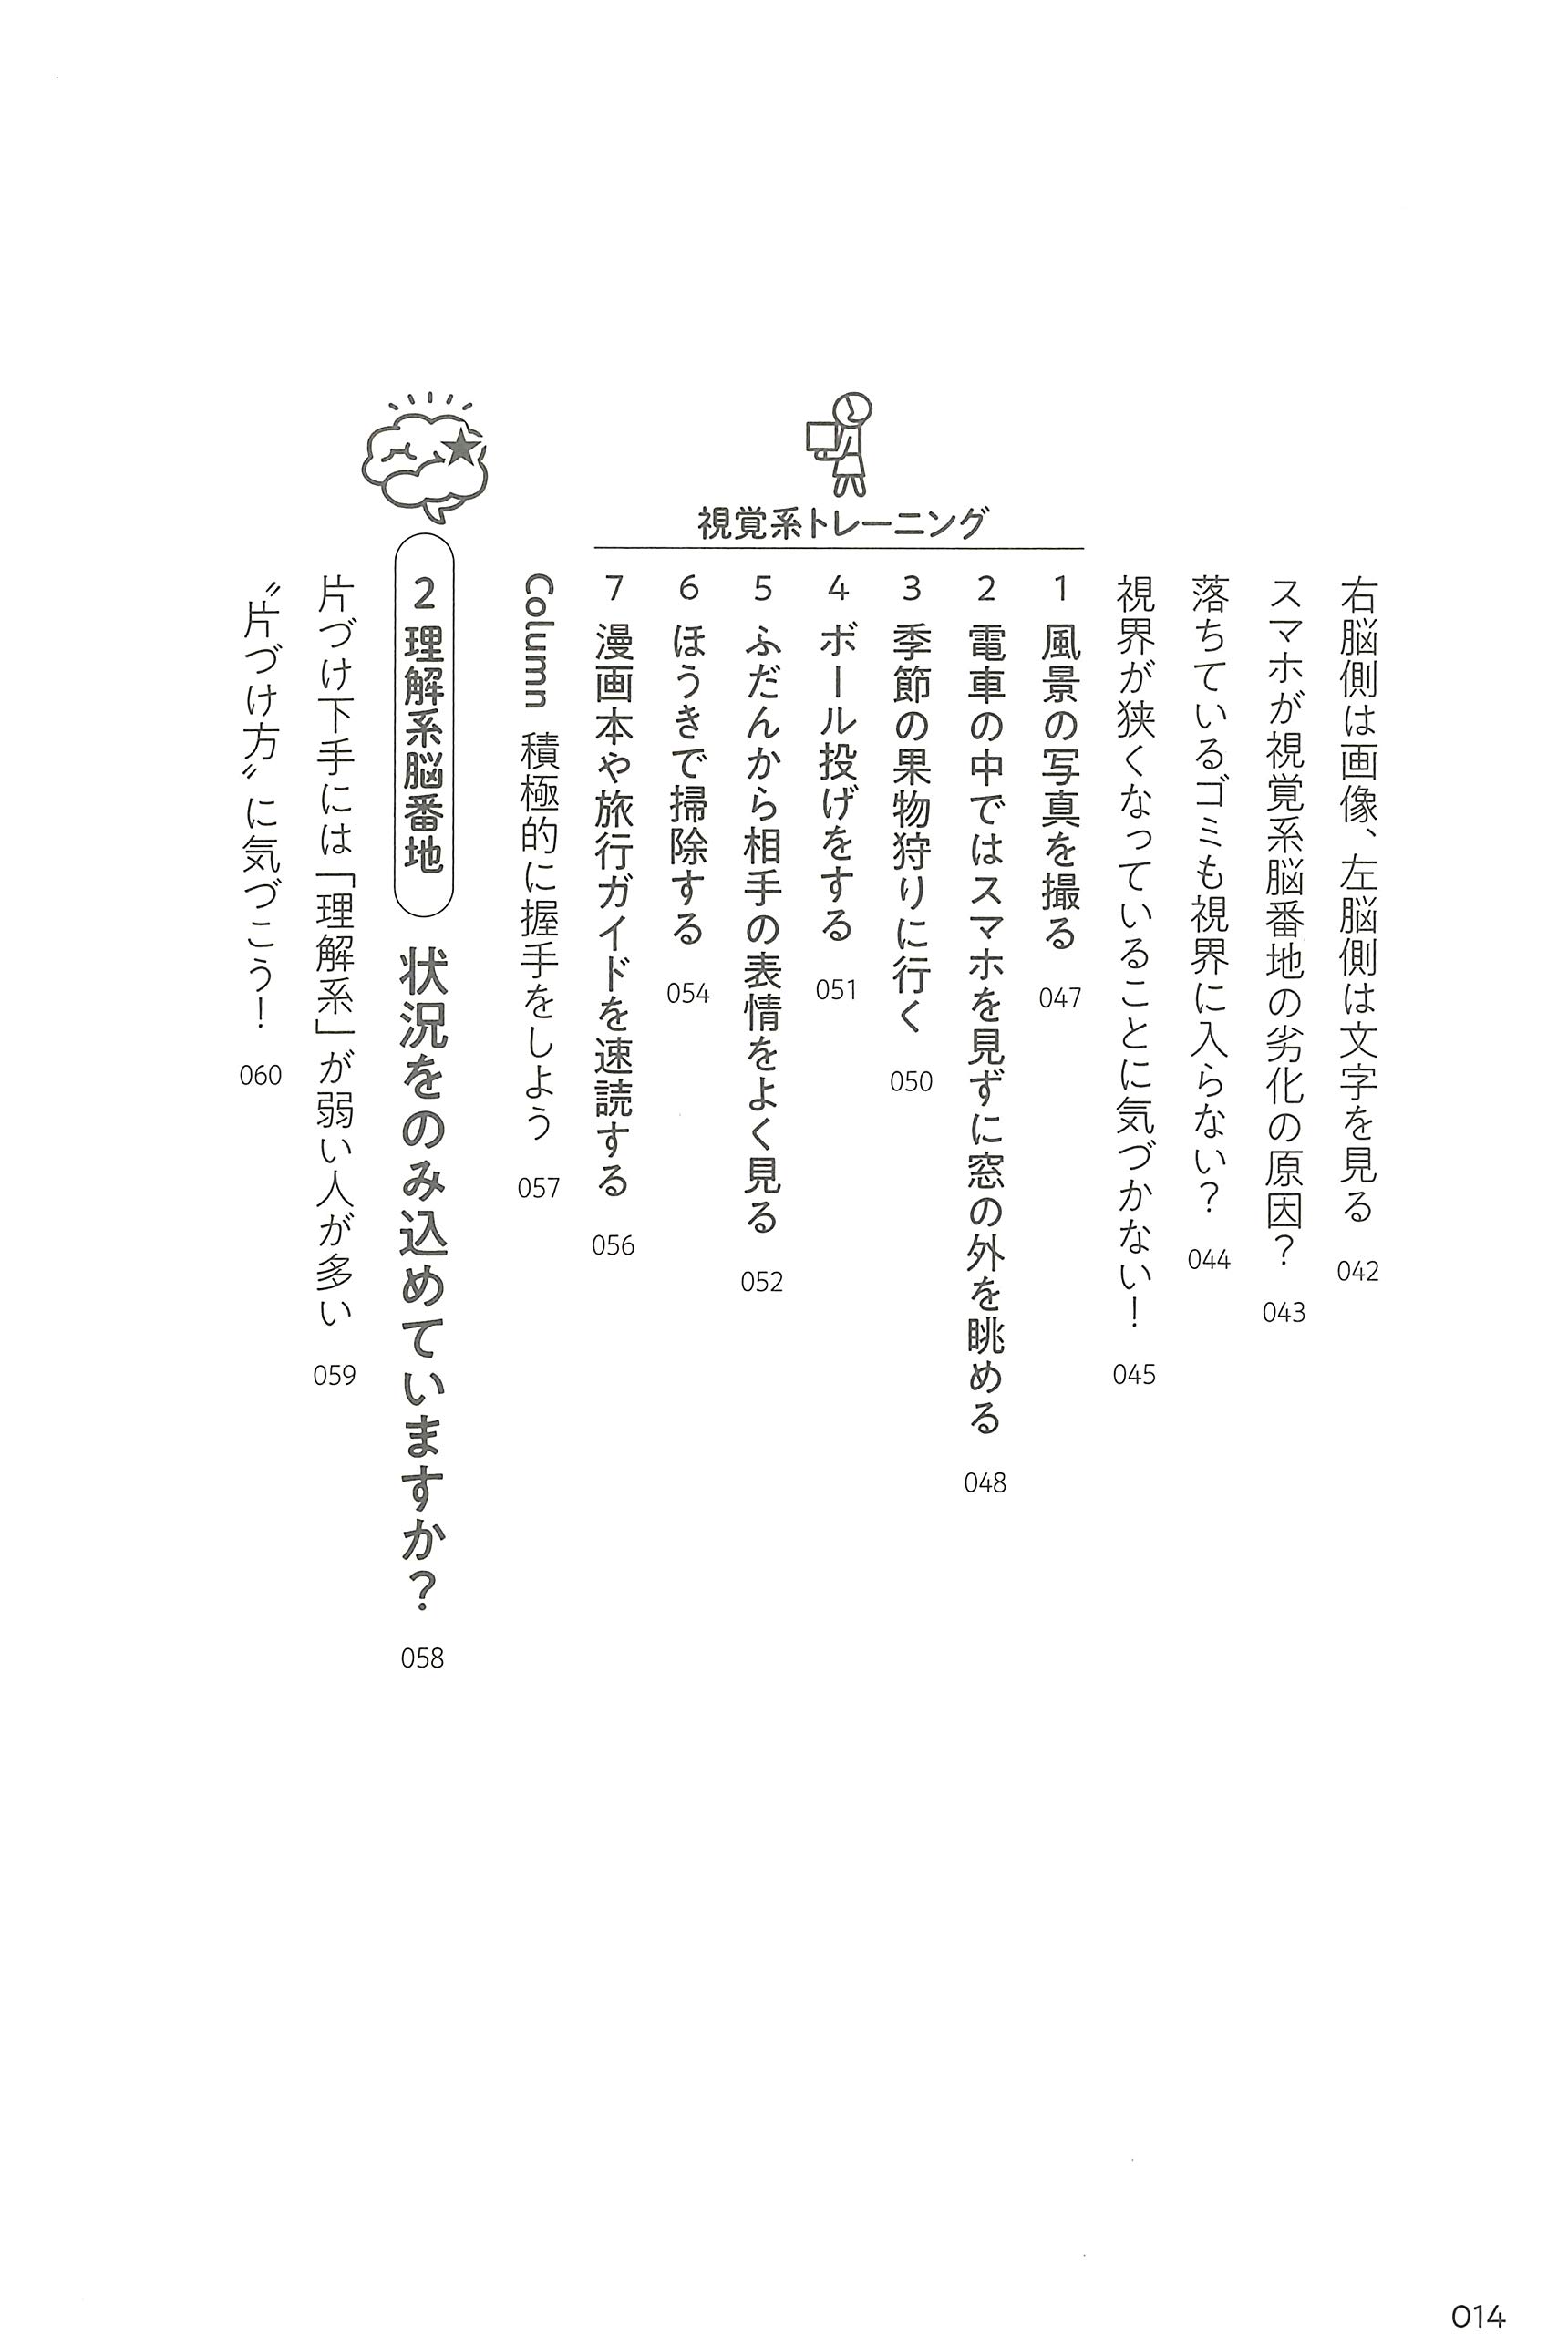 右脳側は画像、左脳側は文字を見る 042
スマホが視覚系脳番地の劣化の原因？ 043
落ちているゴミも視界に入らない？ 044
視界が狭くなっていることに気づかない！ 045
視覚系トレーニング
1 風景の写真を撮る 047
2 電車の中ではスマホを見ずに窓の外を眺める 048
3 季節の果物狩りに行く 050
4 ボール投げをする 051
5 ふだんから相手の表情をよく見る 052
6 ほうきで掃除する 054
7 漫画本や旅行ガイドを速読する 056
Column 積極的に握手をしよう 057
2 理解系脳番地 状況をのみ込めていますか？ 058
片づけ下手には「理解系」が弱い人が多い 059
〝片づけ方〟に気づこう！ 060
014